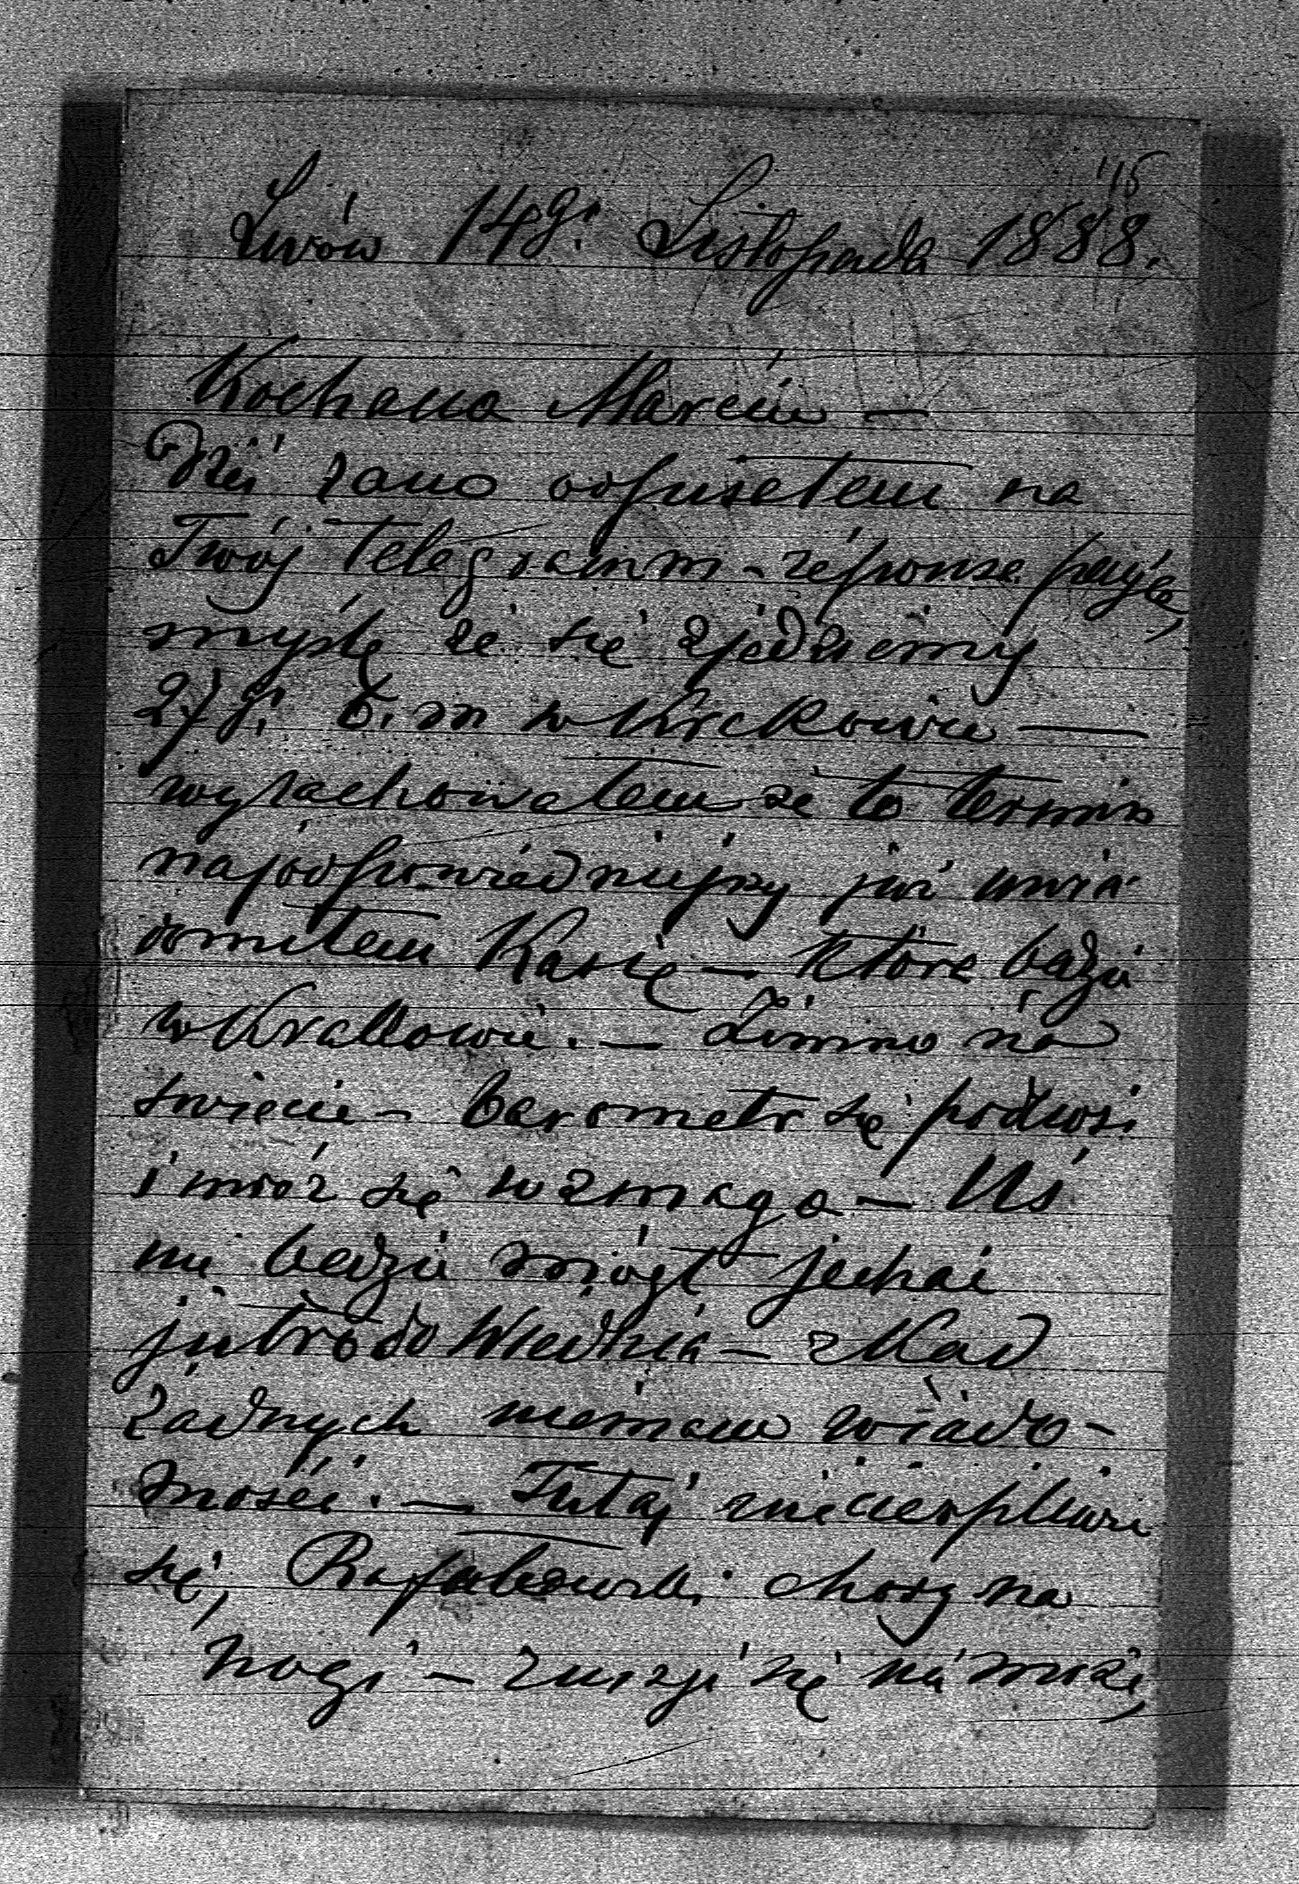 '15
Lwów 14go. Listopada 1888.
Kochana Marciu —
Dziś rano odpisałem na
Twój Telegramm - réponse payée,
myślę że się zjedziemy
27go. b. m w Krakowie —
wyrachowałem że to termin
najodpowiedniejszy już uwia
domiłem Kasię — która będzie
w Krakowie. — Zimno na
świecie — barometr się podnosi
i mróz się wzmaga —
nie będzie mógł jechać
jutro do Wiednia — zkąd
żadnych niemam wiado-
mości. — Tutaj niecierpliwią
się, chory na
nogi — ruszyć się nie może,